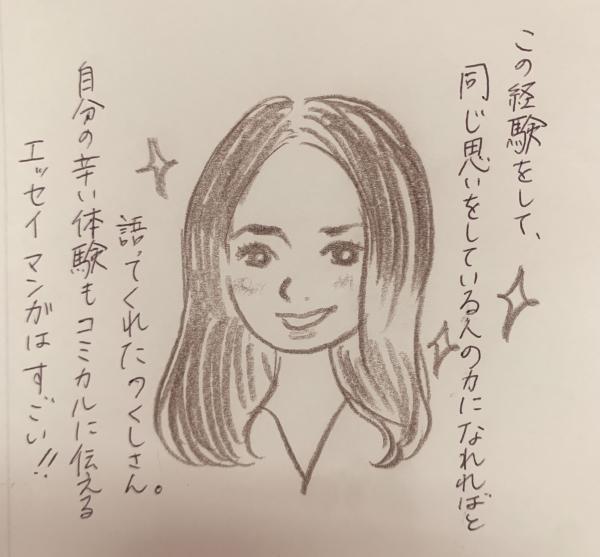 この経験をして、
同じ思いをしている人の力になれればと
語ってくれたつくしさん。
自分の辛い体験もコミカルに伝える
エッセイマンガはすごい!!